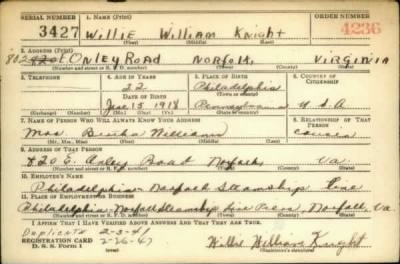 SERIAL NUMBER 1. NAME (Print) ORDER NUMBER
3427 WILLIE WILLIAM KNIGHT 4236
(First) (Middle) (Last)
2. ADDRESS (Print)
802 E. ONLEY ROAD NORFOLK, VIRGINIA
(Number and street or R. F. D. number) (Town) (County) (State)
3. TELEPHONE 4. AGE IN YEARS 5. PLACE OF BIRTH 6. COUNTRY OF CITIZENSHIP
22 Philadelphia
DATE OF BIRTH (Town or county)
15 1918 Pennsylvania U.S.A
(Exchange) (Number) (Mo.) (Day) (Yr.) (State or country)
7. NAME OF PERSON WHO WILL ALWAYS KNOW YOUR ADDRESS 8. RELATIONSHIP OF THAT PERSON
Mrs. Williams cousin
(Mr., Mrs., Miss) (First) (Middle) (Last)
9. ADDRESS OF THAT PERSON
820 E. Road Norfolk Va.
(Number and street or R. F. D. number) (Town) (County) (State)
10. EMPLOYER'S NAME
Philadelphia Norfolk Steamship Line
11. PLACE OF EMPLOYMENT OR BUSINESS
Philadelphia Norfolk Steamship Line Norfolk, Va.
(Number and street or R. F. D. number) (Town) (County) (State)
I AFFIRM THAT I HAVE VERIFIED ABOVE ANSWERS AND THAT THEY ARE TRUE.
Duplicate 2-3-41
REGISTRATION CARD
D. S. S. Form 1 2-26-47 Willie William Knight
(Registrant's signature)